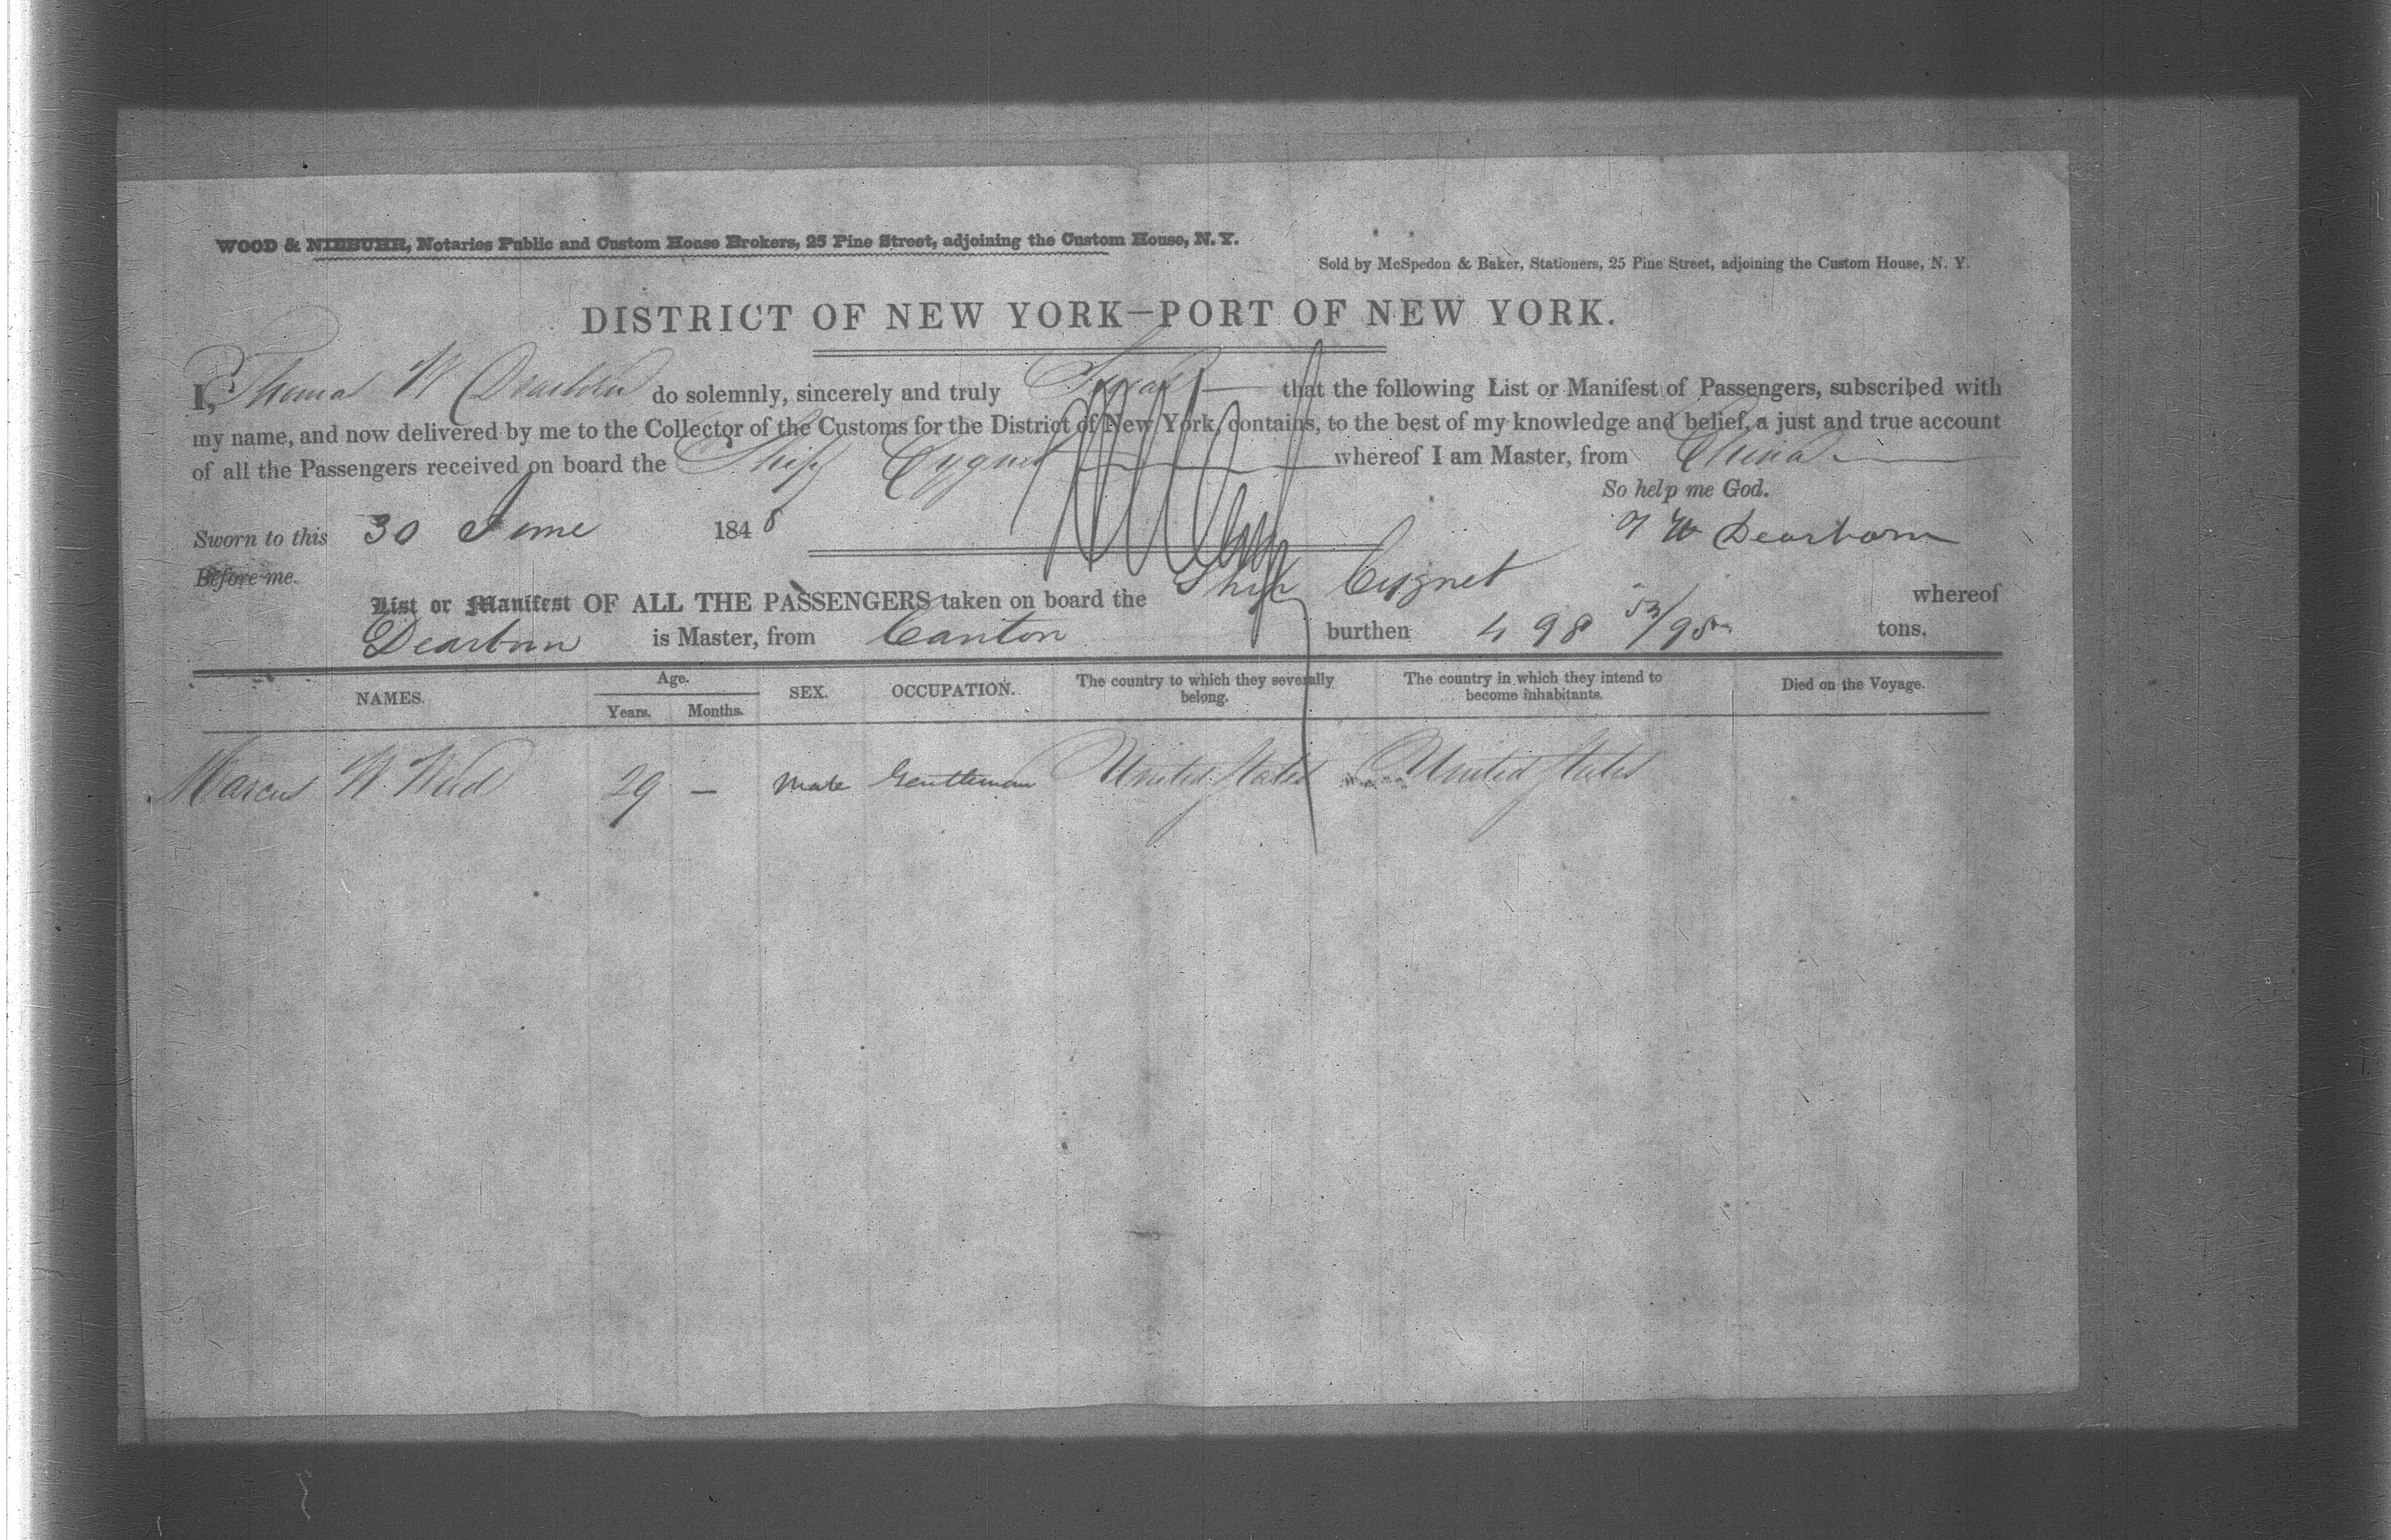 WOOD & NIEBUHR, Notaries Public and Custom House Brokers, 25 Pine Street, adjoining the Custom House, N. Y.
Sold by McSpedon & Baker, Stationers, 25 Pine Street, adjoining the Custom House, N. Y.
DISTRICT OF NEW YORK—PORT OF NEW YORK.
I, Thomas W Dearborn do solemnly, sincerely and truly Swear that the following List or Manifest of Passengers, subscribed with
my name, and now delivered by me to the Collector of the Customs for the District of New York, contains, to the best of my knowledge and belief, a just and true account
of all the Passengers received on board the Ship Cygnet whereof I am Master, from China
So help me God.
Sworn to this 30 June 1848 T W Dearborn
Before me.
List or Manifest OF ALL THE PASSENGERS taken on board the Ship Cygnet whereof
Dearborn is Master, from Canton burthen 498 53/95 tons.
NAMES. Age. Years. Months. SEX. OCCUPATION. The country to which they severally belong. The country in which they intend to become inhabitants. Died on the Voyage.
Marcus W. Weed 29 — Male Gentleman United States United States